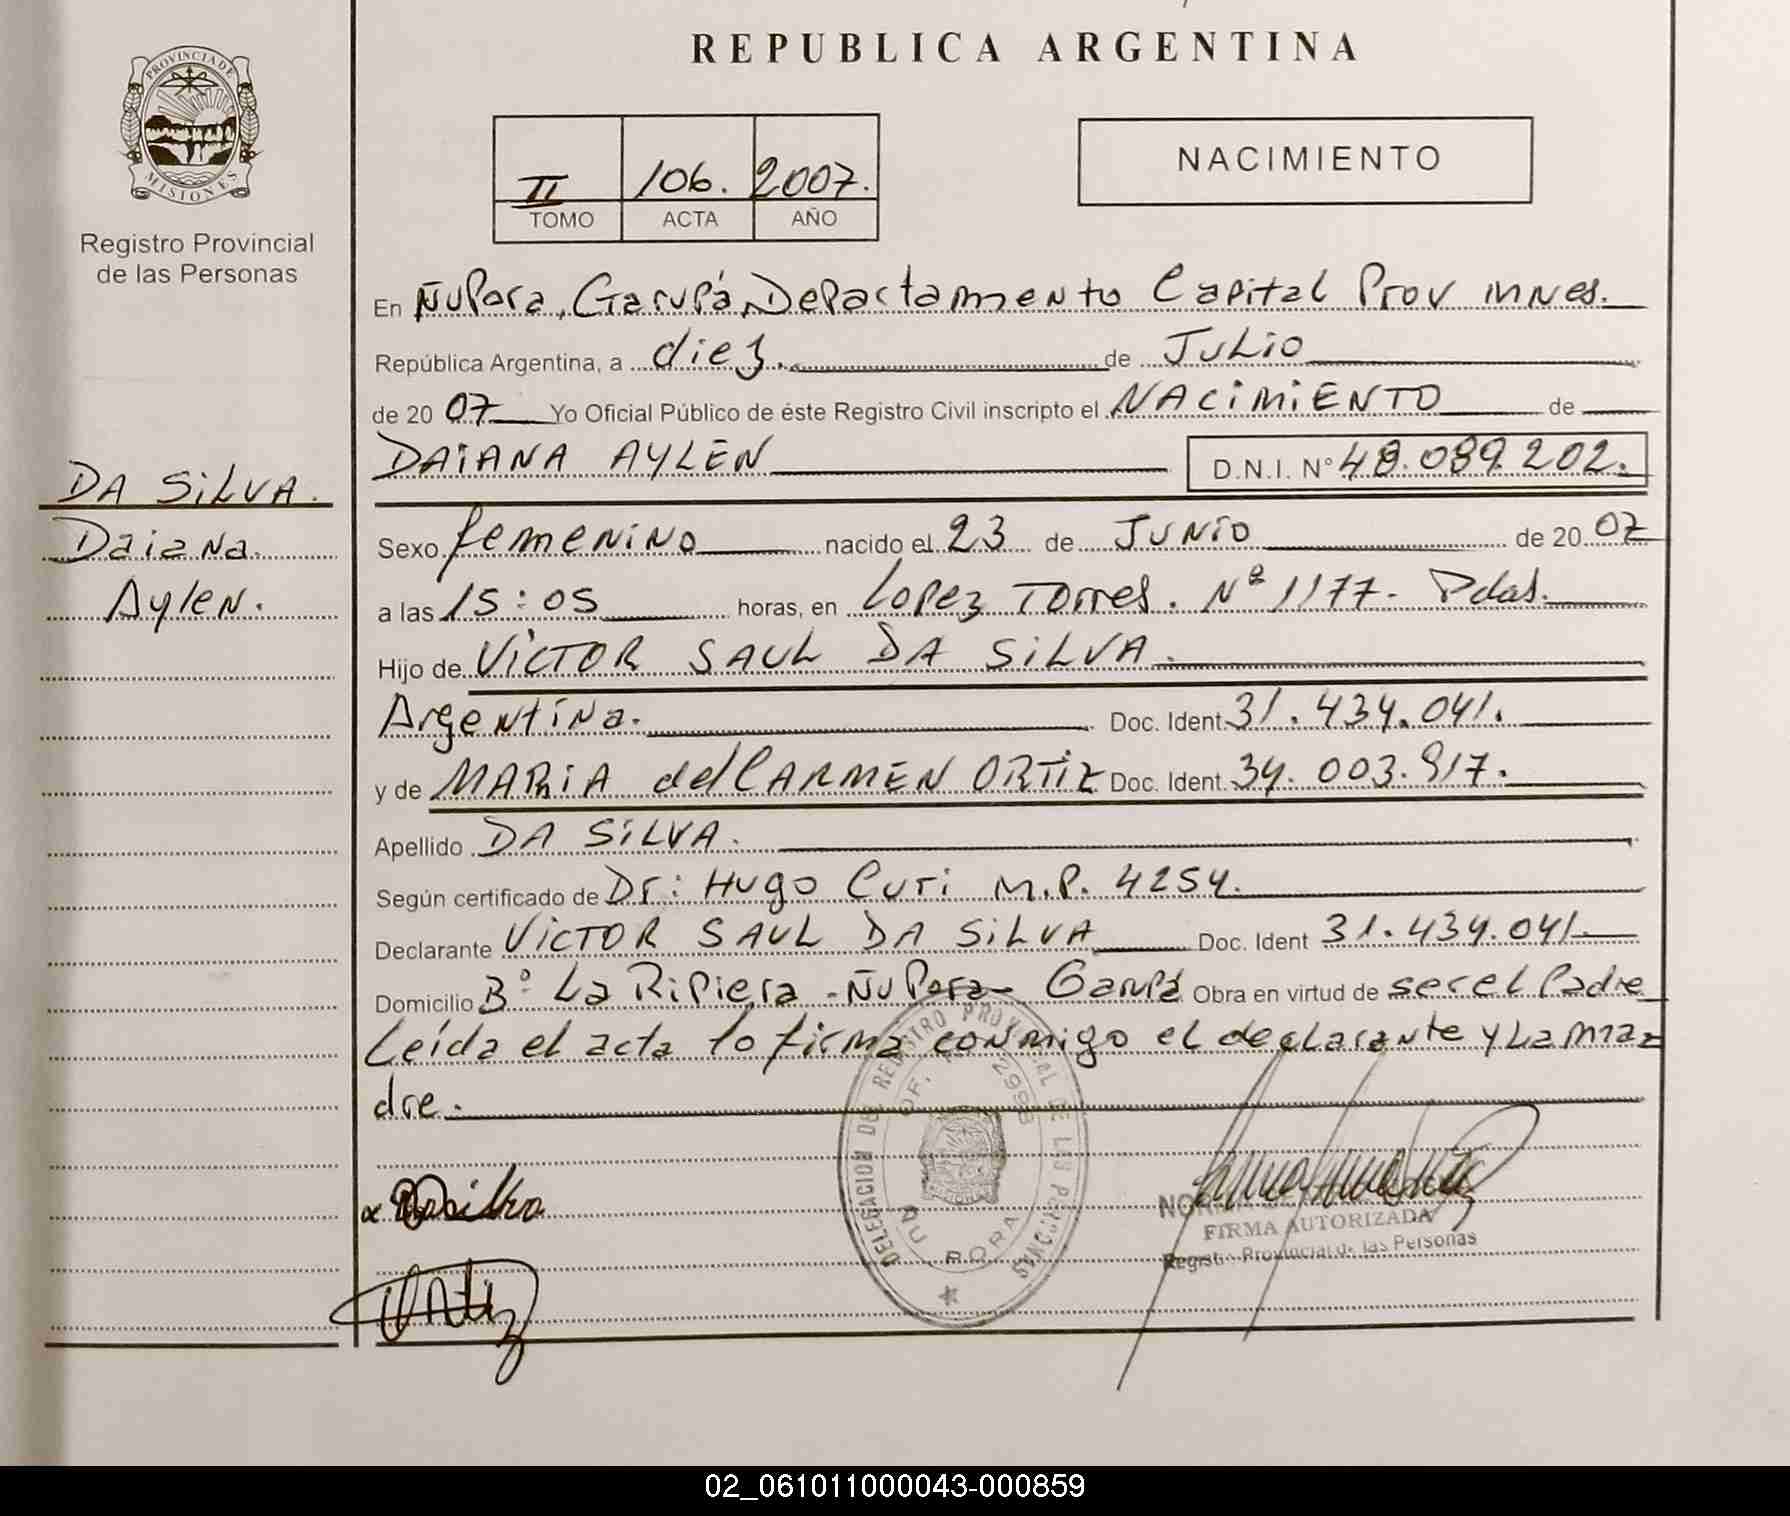 REPUBLICA ARGENTINA
PROVINCIA DE
MISIONES
Registro Provincial
de las Personas
II 106. 2007.
TOMO ACTA AÑO
NACIMIENTO
En Ñu Pora, Garupá, Departamento Capital Prov Mnes.
República Argentina, a diez. de Julio
de 2007 Yo Oficial Público de éste Registro Civil inscripto el NACIMIENTO de
DAIANA AYLEN D.N.I. Nº 48.089.202.
DA SILVA.
Daiana
Aylen.
Sexo femenino nacido el 23 de Junio de 2007
a las 15:05 horas, en Lopez Torres. Nº 1177. Pdas.
Hijo de VICTOR SAUL DA SILVA.
Argentina. Doc. Ident. 31.434.041.
y de MARIA del CARMEN ORTIZ Doc. Ident. 34.003.917.
Apellido DA SILVA.
Según certificado de Dr: Hugo Curi M.P. 4254.
Declarante VICTOR SAUL DA SILVA Doc. Ident 31.434.041.
Domicilio Bº La Ripiera - Ñu Pora - Garupá Obra en virtud de ser el Padre
Leída el acta lo firma conmigo el declarante y La ma
dre.
DELEGACION DEL REGISTRO PROVINCIAL DE LAS PERSONAS
OF. 2998
ÑU PORA
FIRMA AUTORIZADA
Registro Provincial de las Personas
02_061011000043-000859